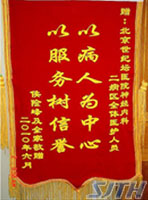 赠：北京世纪坛医院神经内科
二病区全体医护人员
以病人为中心
以服务树信誉
及全家敬赠
二〇一〇年六月
SJTH